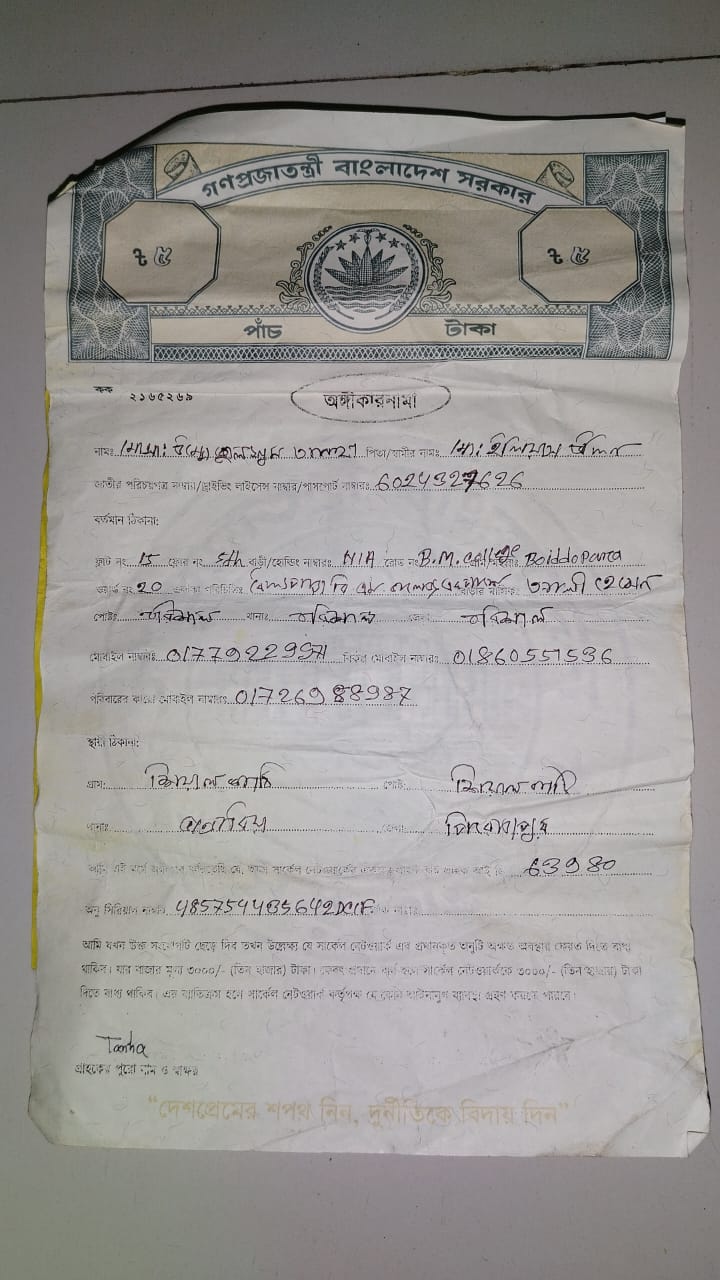 গণপ্রজাতন্ত্রী বাংলাদেশ সরকার
৳ ৫ ৳ ৫
পাঁচ টাকা
কক ২১৬৫২৬৯
অঙ্গীকারনামা
নামঃ পিতা/স্বামীর নামঃ মো:
জাতীয় পরিচয়পত্র নাম্বার/ড্রাইভিং লাইসেন্স নাম্বার/পাসপোর্ট নাম্বারঃ 6024327626
বর্তমান ঠিকানা:
ফ্লাট নং 15 ফ্লোর নং 5th বাড়ী/হোল্ডিং নাম্বারঃ N/A রোড নং B.M. college Boiddo Para
ওয়ার্ড নং 20 এলাকা পরিচিতিঃ
পোষ্টঃ বরিশাল থানাঃ বরিশাল জেলাঃ বরিশাল
মোবাইল নাম্বারঃ বিকল্প মোবাইল নাম্বারঃ 01860551536
পরিবারের কারো মোবাইল নাম্বারঃ 01726988987
স্থায়ী ঠিকানা:
গ্রাম: পোষ্ট:
থানাঃ জেলাঃ
আমি এই মর্মে অঙ্গীকার করিতেছি যে, আমি সার্কেল নেটওয়ার্কের 63980
অনু সিরিয়াল নাম্বারঃ
আমি যখন উক্ত সংযোগটি ছেড়ে দিব তখন উল্লেখ্য যে সার্কেল নেটওয়ার্ক এর প্রদানকৃত অনুটি অক্ষত অবস্থায় ফেরত দিতে বাধ্য
থাকিব। যার বাজার মূল্য ৩০০০/- (তিন হাজার) টাকা। ফেরৎ প্রদানে ব্যর্থ হলে সার্কেল নেটওয়ার্ককে ৩০০০/- (তিন হাজার) টাকা
দিতে বাধ্য থাকিব। এর ব্যতিক্রম হলে সার্কেল নেটওয়ার্ক কর্তৃপক্ষ যে কোন আইনানুগ ব্যবস্থা গ্রহণ করতে পারবে।
Tanha
গ্রাহকের পুরো নাম ও স্বাক্ষর
“দেশপ্রেমের শপথ নিন, দুর্নীতিকে বিদায় দিন”